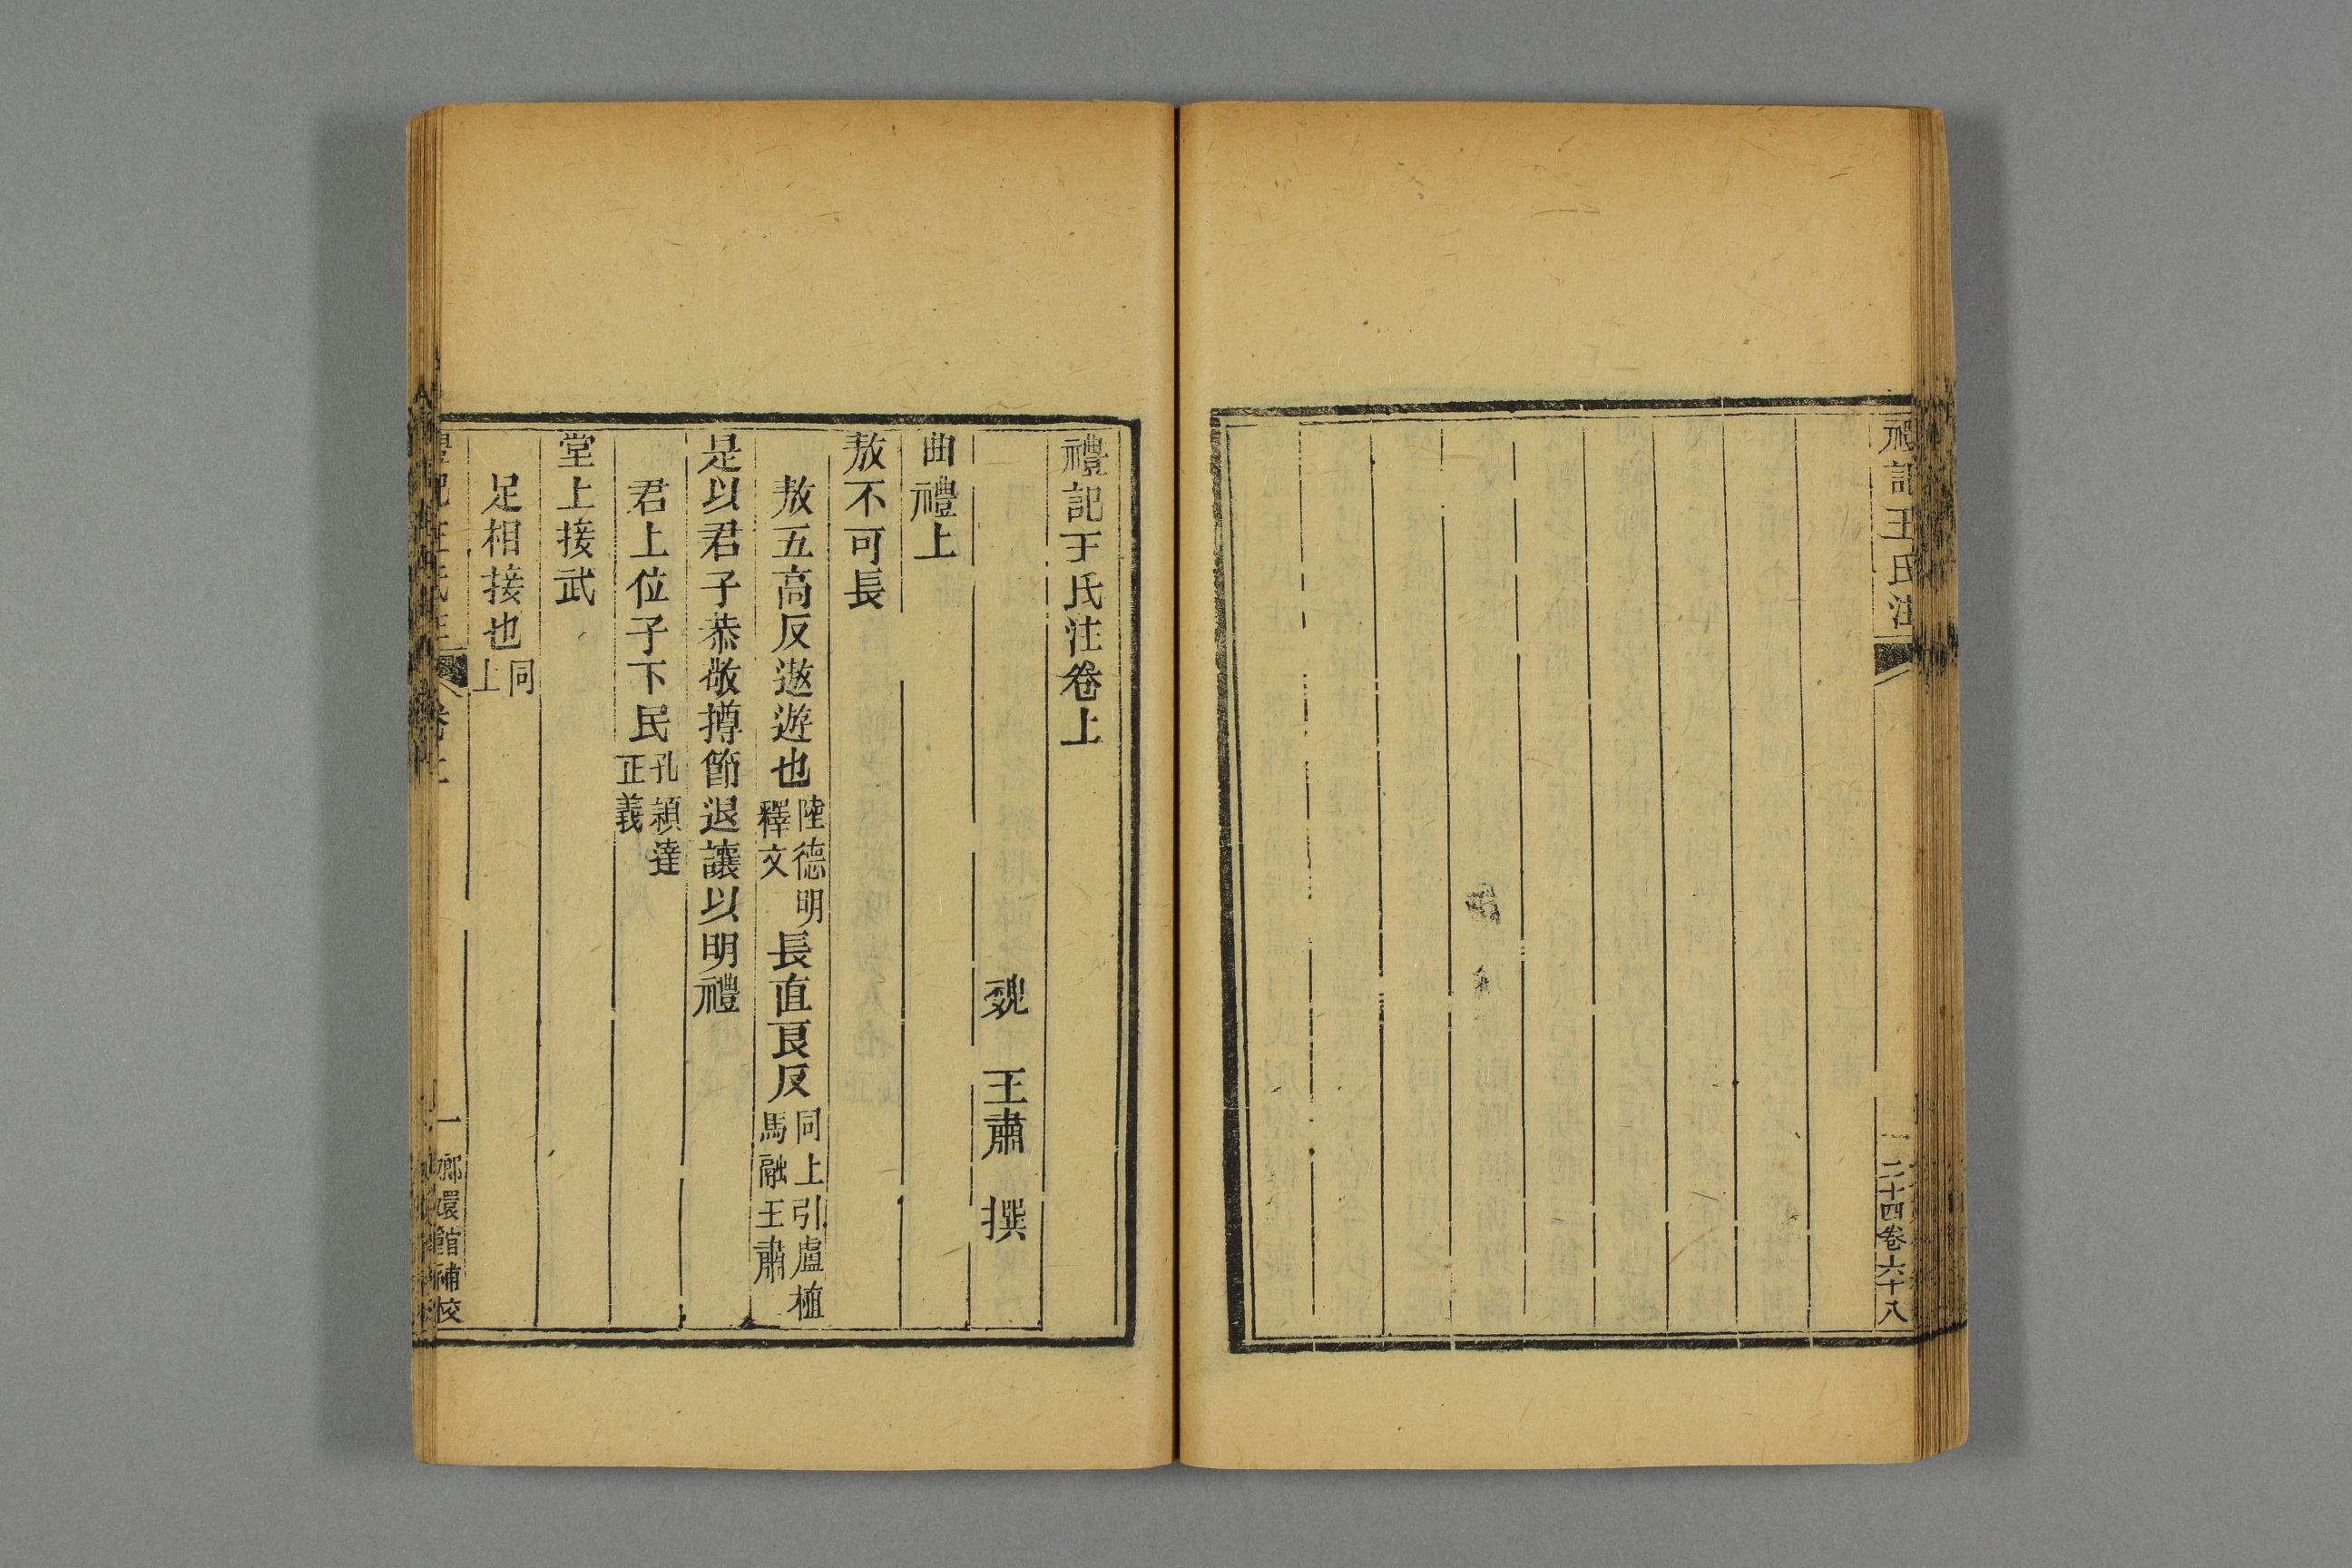 禮記王氏注
二十四卷六十八
禮記王氏注卷上
魏 王肅 撰
曲禮上
敖不可長
敖五高反遨遊也陸德明釋文長直良反同上引盧植馬融王肅
是以君子恭敬撙節退讓以明禮
君上位子下民孔穎達正義
堂上接武
足相接也同上
禮記王氏注 卷上
一 嫏嬛館補校